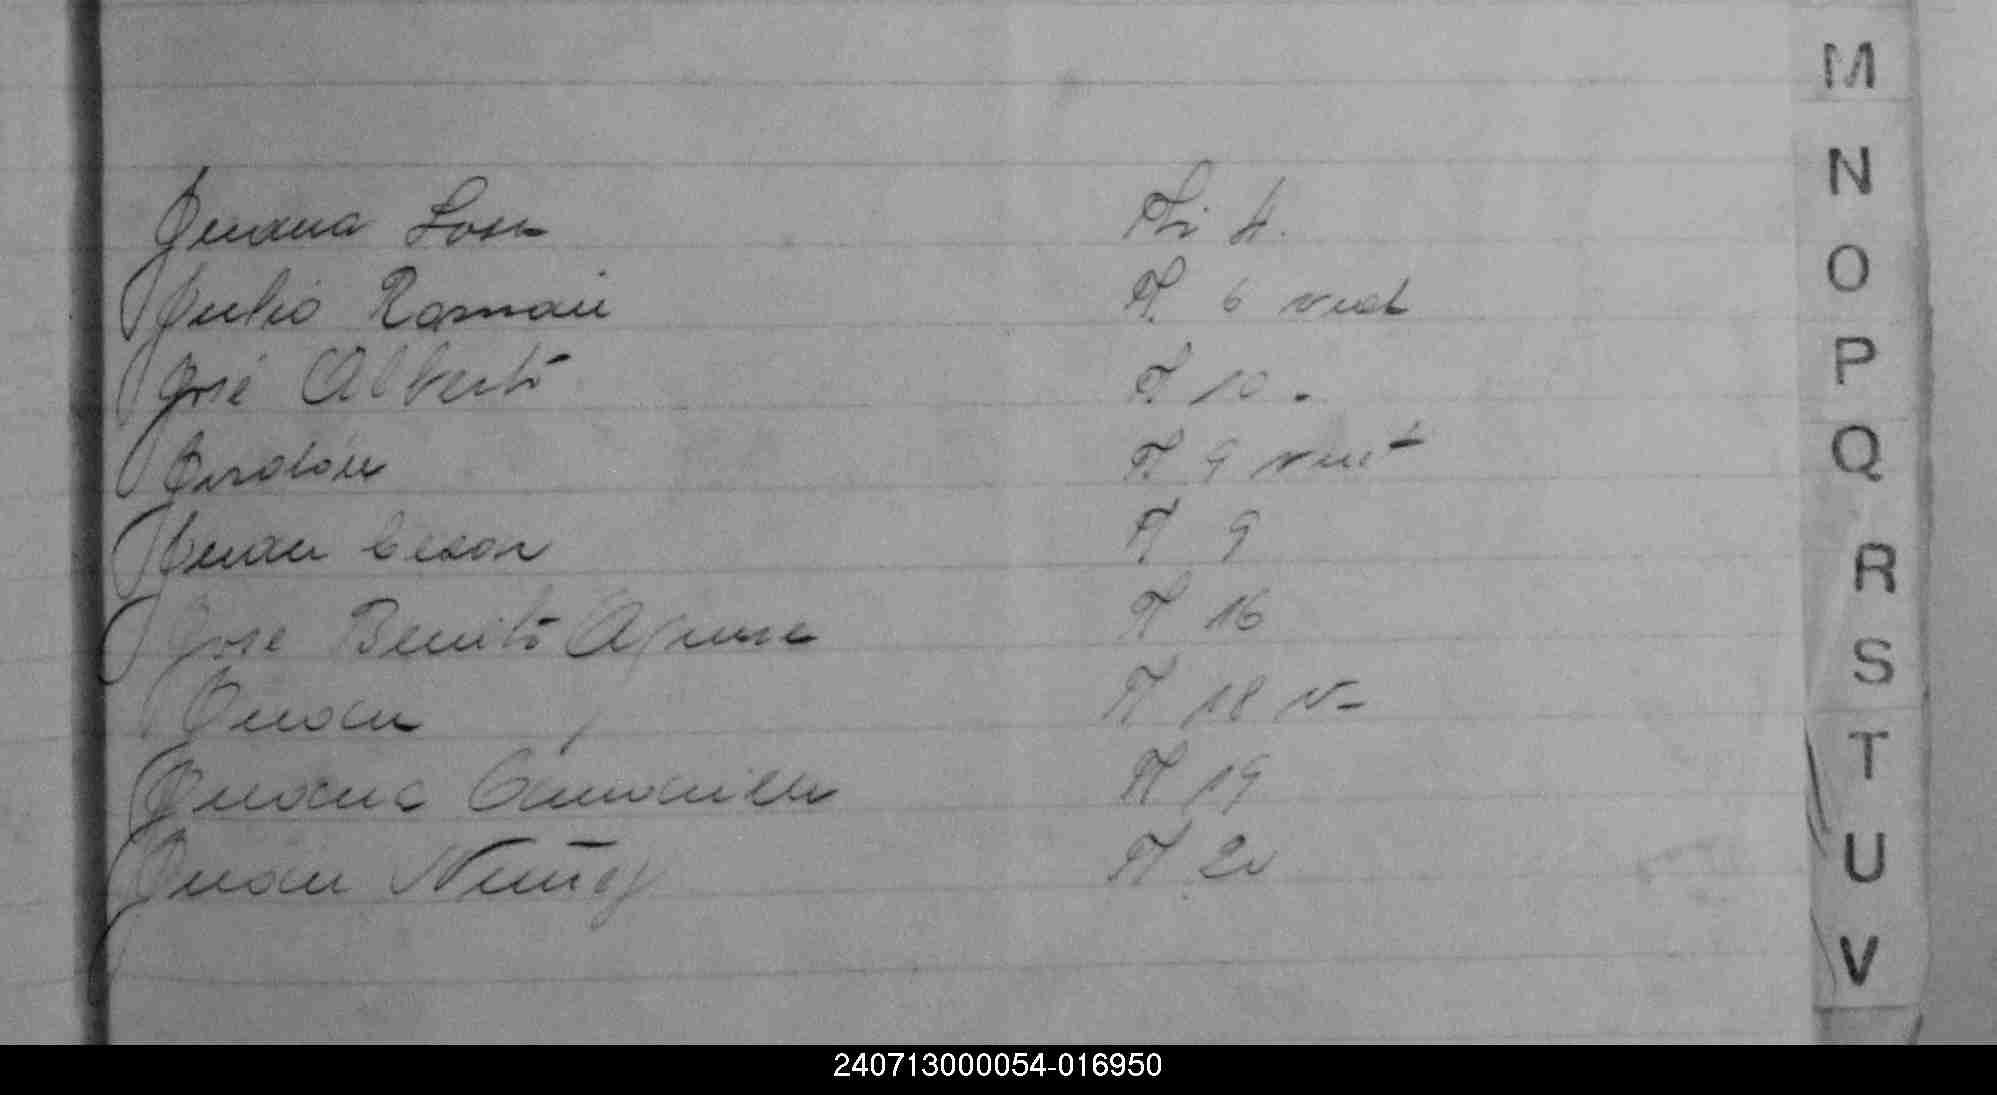 Juana Rosa Fs 4.
Julio Roman F. 6 vuel
José Alberto F. 10.
F. 9 vuelt
Juan Cesar F. 9
Jose Benito F. 16
Juan F. 18 v-
Juana F. 19
Juan Nuñez F. 20
M
N
O
P
Q
R
S
T
U
V
240713000054-016950